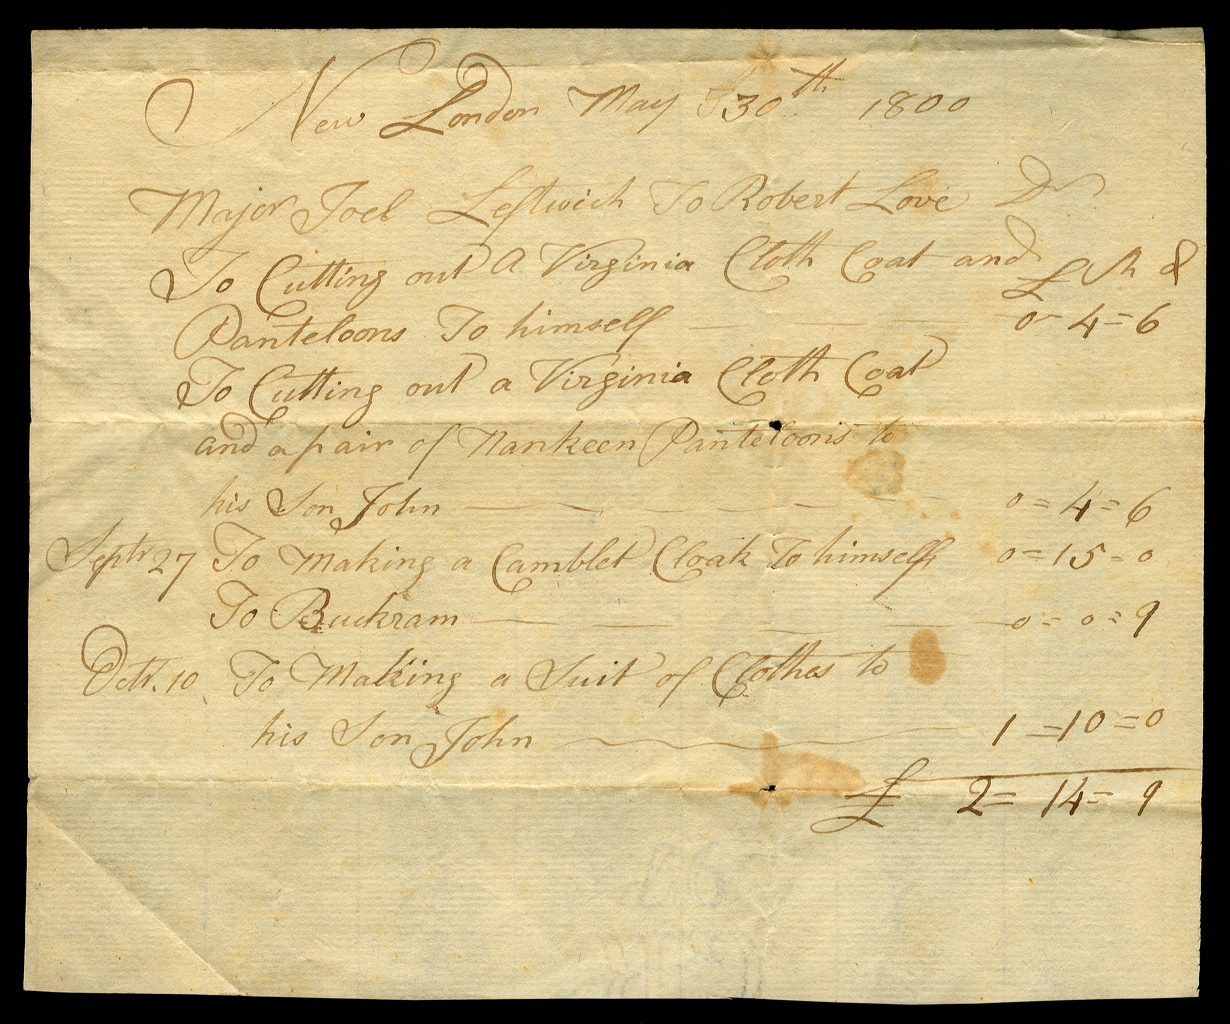 New London May 30th 1800
Major Joel Leftwich To Robert Love Dr
To Cutting out A Virginia Cloth Coat and £ Sh d
Panteloons To himself 0=4=6
To Cutting out a Virginia Cloth Coat
and a pair of Nankeen Panteloons to
his Son John 0=4=6
Septr 27 To Making a Camblet Cloak To himself 0=15=0
To Buckram 0=0=9
Octr. 10 To Making a Suit of Clothes to
his Son John 1=10=0
£ 2=14=9